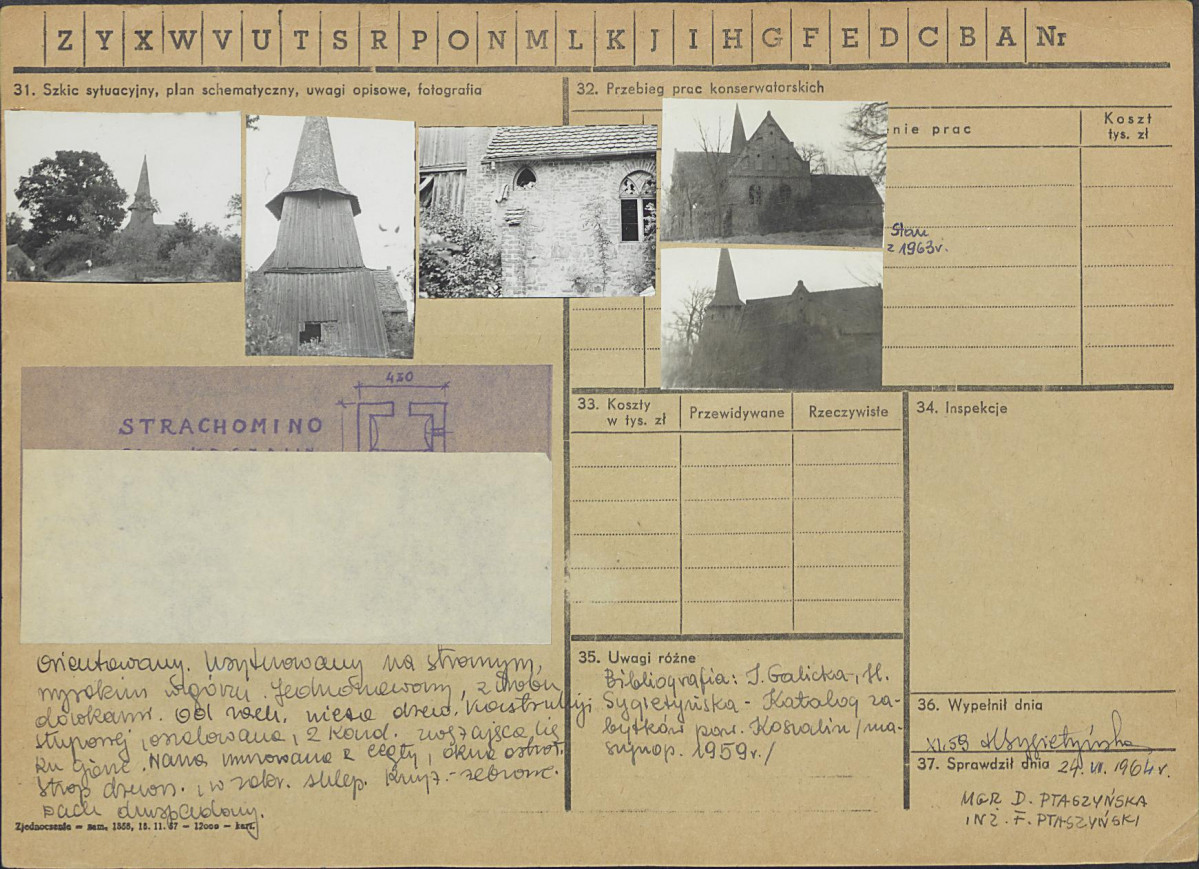 Z Y X W V U T S R P O N M L K J I H G F E D C B A Nr
31. Szkic sytuacyjny, plan schematyczny, uwagi opisowe, fotografia
STRACHOMINO
430
Orientowany. Usytuowany na stromym,
wysokim wzgórzu. Jednonawowy, z dwoma
dobudówkami. Od zach. wieża drew. konstrukcji
słupowej, oszalowana, 2 kond. zwężająca się
ku górze. Nawa murowana z cegły, okna ostroł.
Strop drewn. i w zakr. sklep. krzyż.-żebrowe.
Dach dwuspadowy.
Zjednoczenie — zam. 1558, 15. 11. 57 — 12000 — kart.
32. Przebieg prac konserwatorskich
nie prac
Koszt
tys. zł
Stan
z 1963r.
33. Koszty
w tys. zł
Przewidywane
Rzeczywiste
34. Inspekcje
35. Uwagi różne
Bibliografia: I. Galicka, H.
Sygietyńska - Katalog za-
bytków pow. Koszalin /ma-
szynop. 1959r./
36. Wypełnił dnia
XI.59 HSygietyńska
37. Sprawdził dnia 24.VII.1964r.
MGR D. PTASZYŃSKA
INŻ. F. PTASZYŃSKI